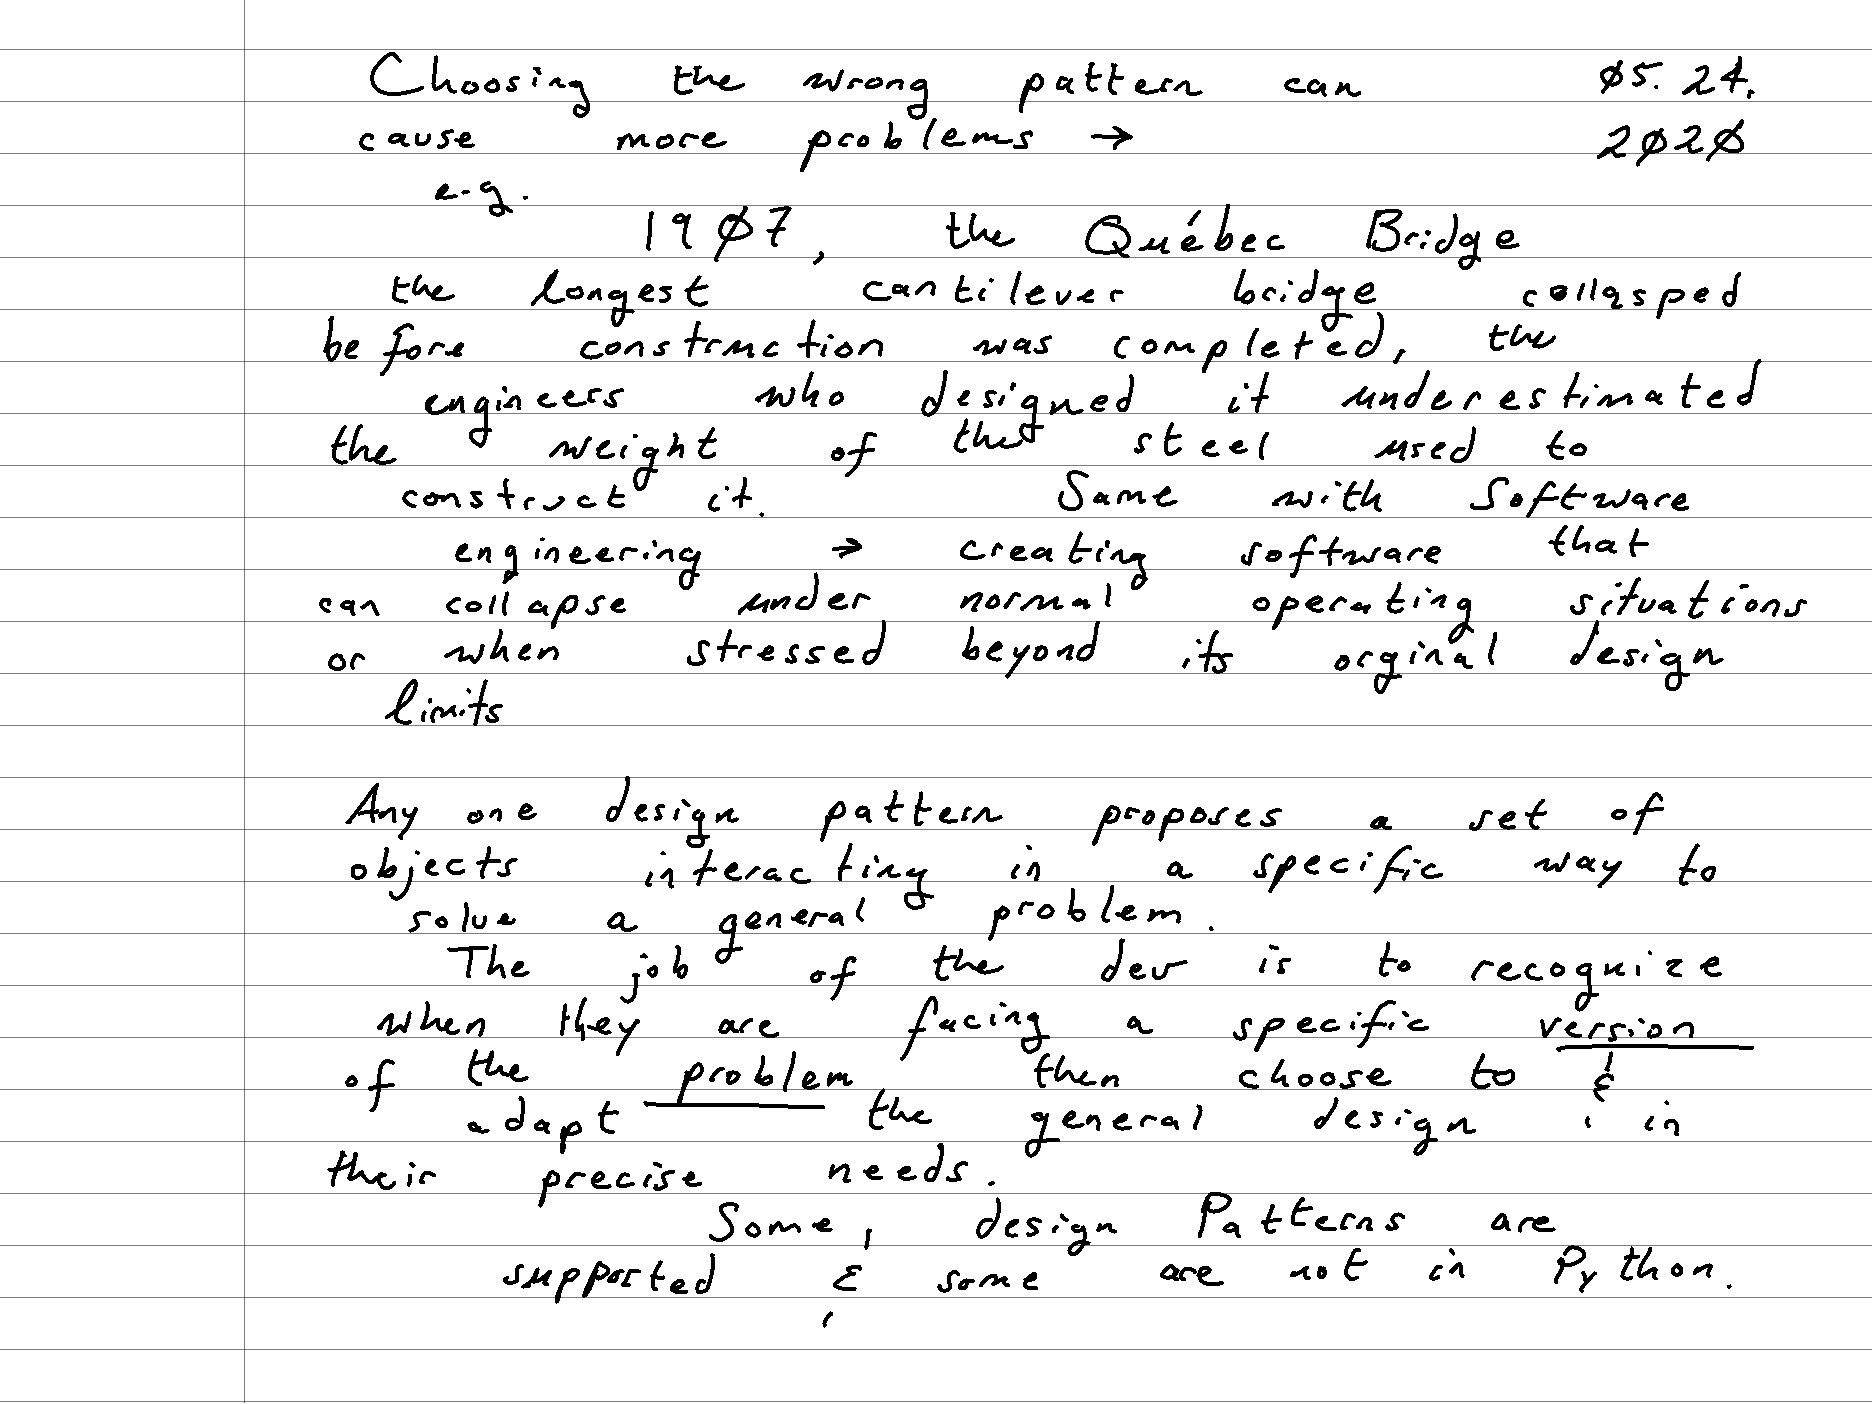 Choosing the wrong pattern can 05.24.
cause more problems → 2020
e.g.
1907, the Québec Bridge
the longest cantilever bridge collasped
before construction was completed, the
engineers who designed it underestimated
the weight of the steel used to
construct it. Same with Software
engineering → creating software that
can collapse under normal operating situations
or when stressed beyond its orginal design
limits
Any one design pattern proposes a set of
objects interacting in a specific way to
solve a general problem.
The job of the dev is to recognize
when they are facing a specific version
of the problem then choose to &
adapt the general design in
their precise needs.
Some, design Patterns are
supported & some are not in Python.